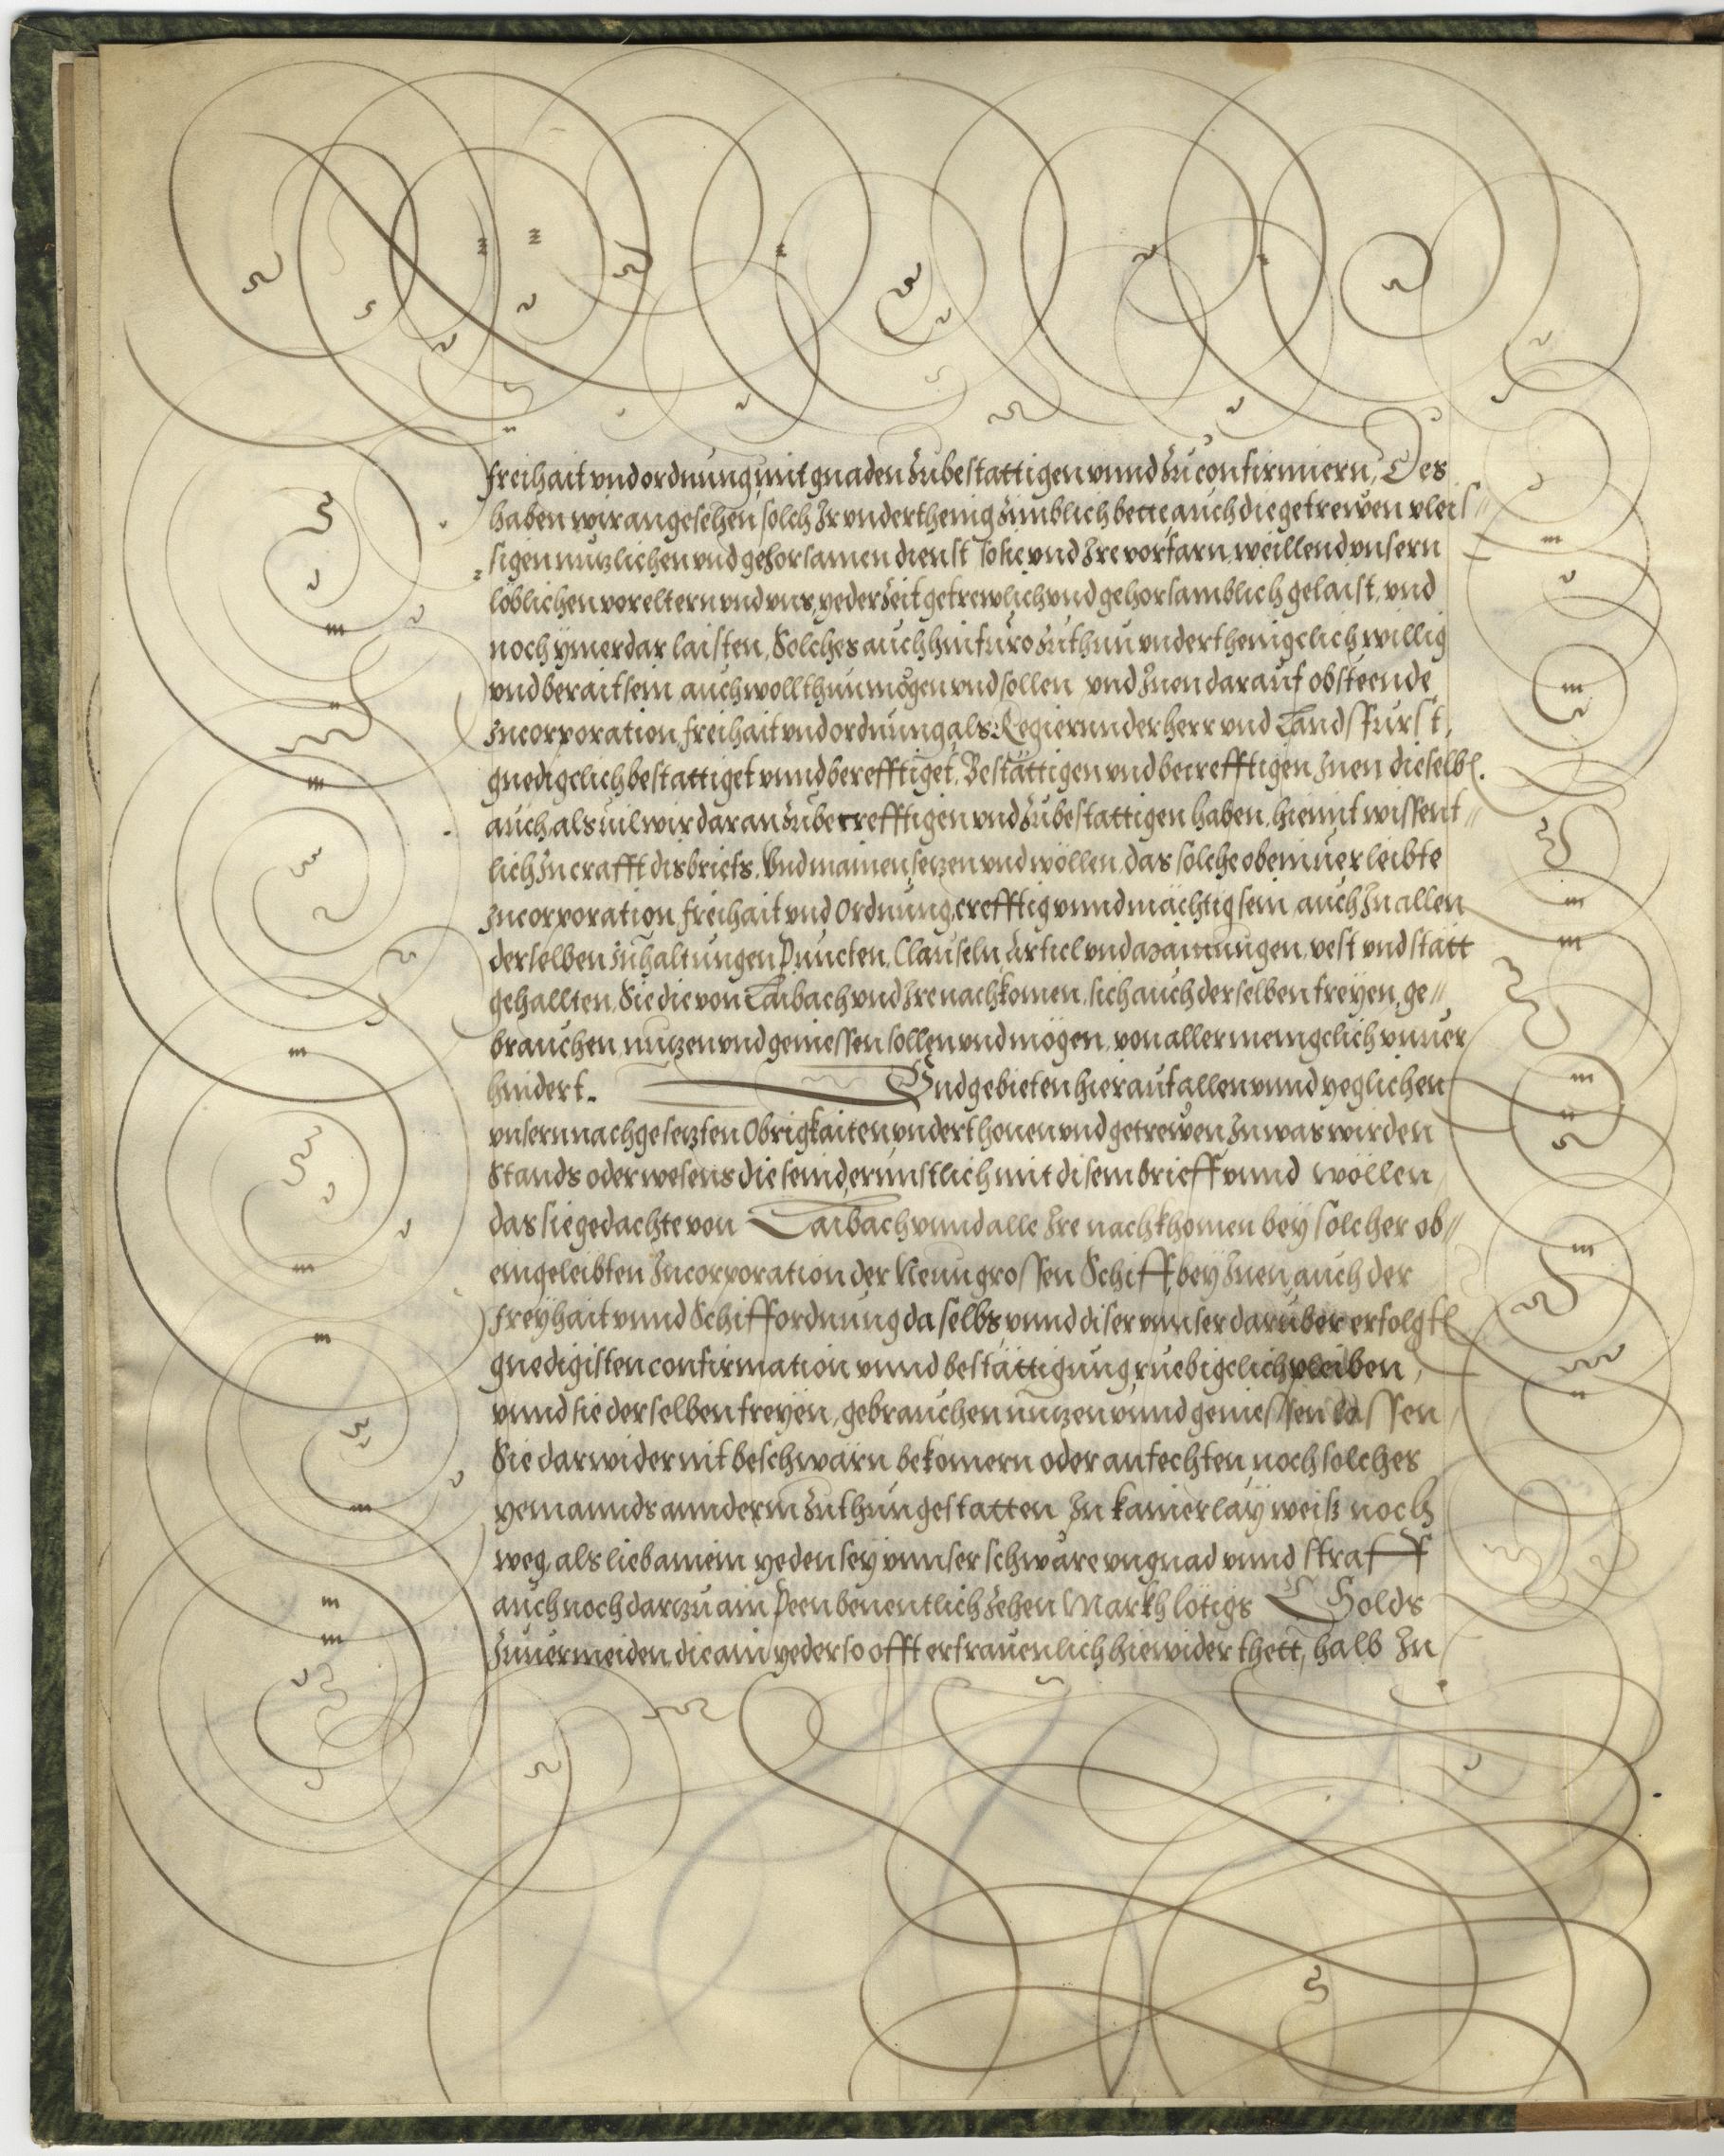 freihait vnd ordnung, mit gnaden zubestattigen vnnd zu confirmiern, Des
haben wir angesehen solch Ir vnderthenig zimblich bette auch die getrewen vleis//
sigen nutzlichen vnd gehorsamen dienst so sie vnd Ire vorfarn, weillend vnsern
loblichen voreltern vnd vns, yederzeit getrewlich vnd gehorsamblich gelaist, vnd
noch ymerdar laisten, Solches auch hinfuro zuthun vnderthenigclich willig
vnd berait sein auch woll thun mögen vnd sollen vnd Inen darauf obsteende
Incorporation freihait vnd ordnung als Regierunder herr vnd Landsfurst,
gnedigclich bestattiget vnnd becrefftiget, Bestättigen vnd becrefftigen Inen dieselbn.
auch, als uil wir daran zubecrefftigen vnd zubestattigen haben, hiemit wissent//
lich In crafft dis briefs, Vnd mainen setzen vnd wöllen, das solche obeinuerleibte
Incorporation, freihait vnd Ordnung, crefftig vnnd mächtig sein, auch In allen
derselben Inhaltungen Puncten, Clauseln, Articl vnd mainungen, vest vnd statt
gehallten, Sie die von Laibach vnd Ire nachkomen, sich auch derselben freyen, ge//
brauchen nutzen vnd geniessen sollen vnd mögen, von allermenigclich vnuer
hindert. Vnd gebieten hierauf allen vnnd yeglichen
vnsern nachgesetzten Obrigkaiten vnderthonen vnd getrewen In was wirden
Stands oder wesens die sein, ernnstlich mit disem brieff vnnd wöllen
das sie gedachte von Laibach vnnd alle Ire nachkhomen bey solcher ob//
eingeleibten Incorporation der Neun grossen Schiff bey Inen, auch der
Freyhait vnnd Schiffordnung daselbs, vnnd diser vnnser darüber erfolgtn
gnedigisten confirmation vnnd bestättigung, ruebigclich pleiben,
vnnd sie derselben freyen, gebrauchen nutzen vnnd geniessen lassen
Sie darwider nit beschwärn bekomern oder anfechten noch solches
yemannds annderm zuthun gestatten In kainerlay weiß noch
weg, als lieb ainem yeden sey vnnser schwäre vngnad vnnd straff
auch noch darzu ain Peen benentlich zehen Markh lötigs Golds
zuuermeiden, die ain yeder so offt er frauenlich hiewider thett, halb In